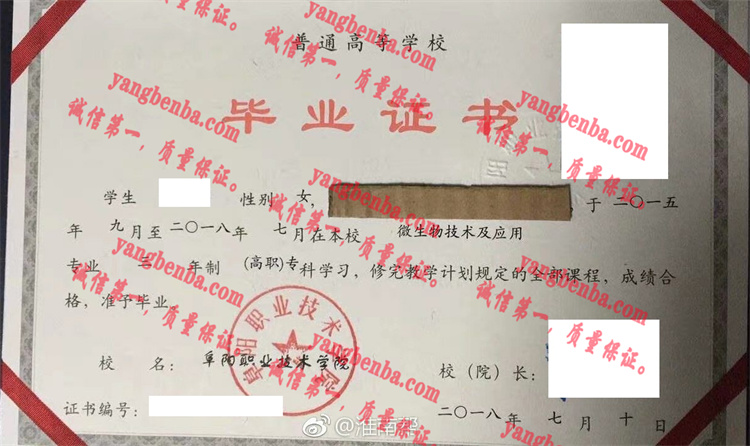 普通高等学校
毕业证书
学生 性别 女, 于 二〇一五
年 九月至二〇一八年 七月在本校 微生物技术及应用
专业 三 年制 (高职)专科学习, 修完教学计划规定的全部课程, 成绩合
格, 准予毕业。
校 名: 阜阳职业技术学院
校(院)长:
证书编号:
二〇一八年 七月 十日
阜阳职业技术学院
yangbenba.com
诚信第一,质量保证。
yangbenba.com
诚信第一,质量保证。
yangbenba.com
诚信第一,质量保证。
yangbenba.com
诚信第一,质量保证。
yangbenba.com
诚信第一,质量保证。
yangbenba.com
诚信第一,质量保证。
yangbenba.com
诚信第一,质量保证。
yangbenba.com
诚信第一,质量保证。